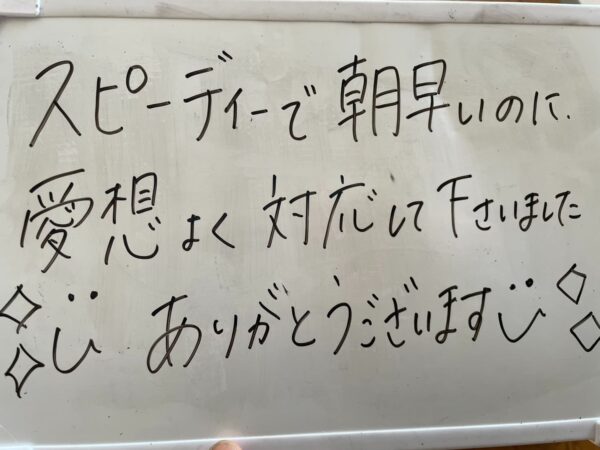 スピーディーで朝早いのに、
愛想よく対応して下さいました
ありがとうございます